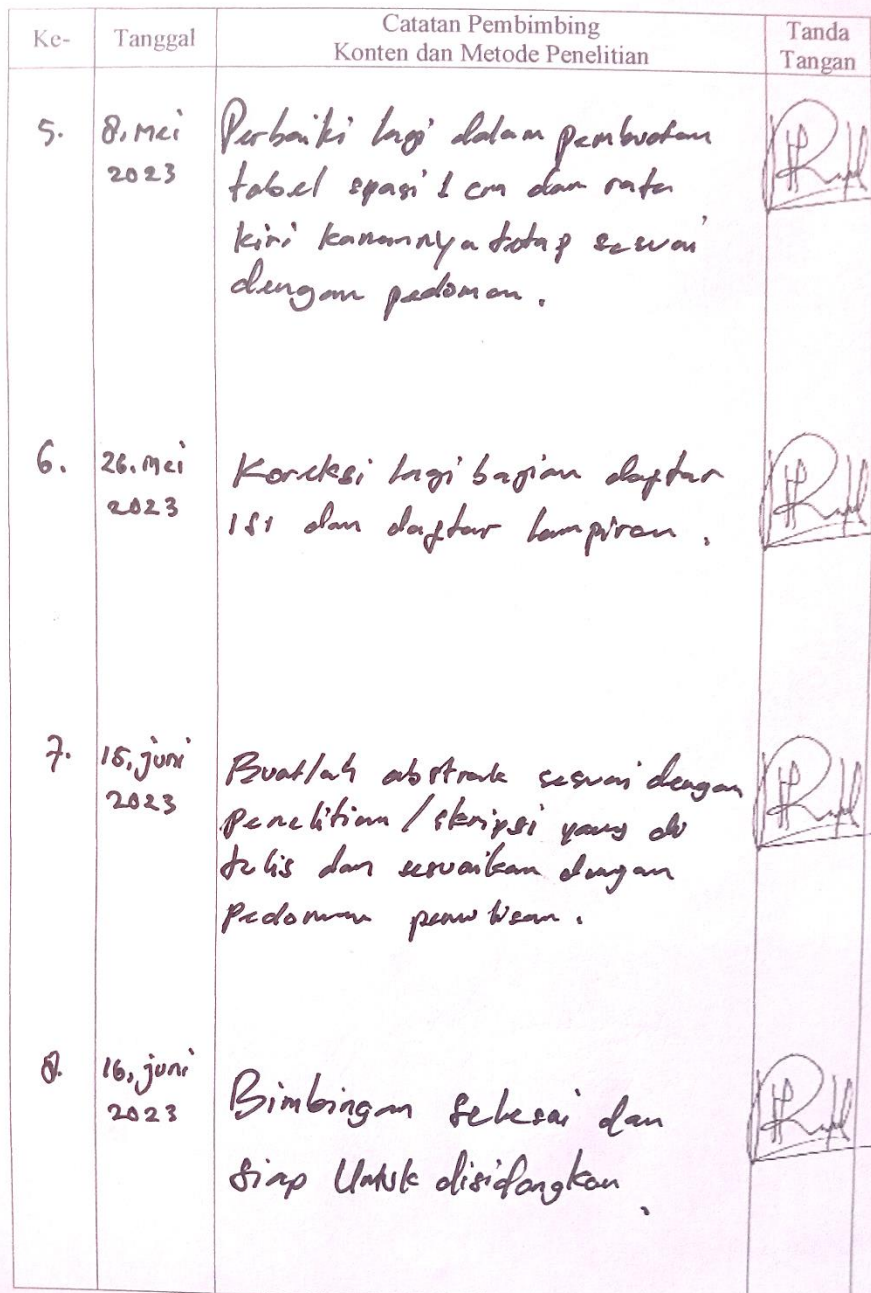 Ke- Tanggal Catatan Pembimbing Tanda
Konten dan Metode Penelitian Tangan
5. 8, mei Perbaiki lagi dalam pembuatan
2023 tabel spasi 1 cm dan rata
kiri kanannya tetap sesuai
dengan pedoman.
6. 26. mei Koreksi lagi bagian daftar
2023 isi dan daftar lampiran.
7. 15, juni Buatlah abstrak sesuai dengan
2023 penelitian / skripsi yang di
tulis dan sesuaikan dengan
Pedoman penulisan.
8. 16, juni Bimbingan selesai dan
2023 siap Untuk disidangkan.